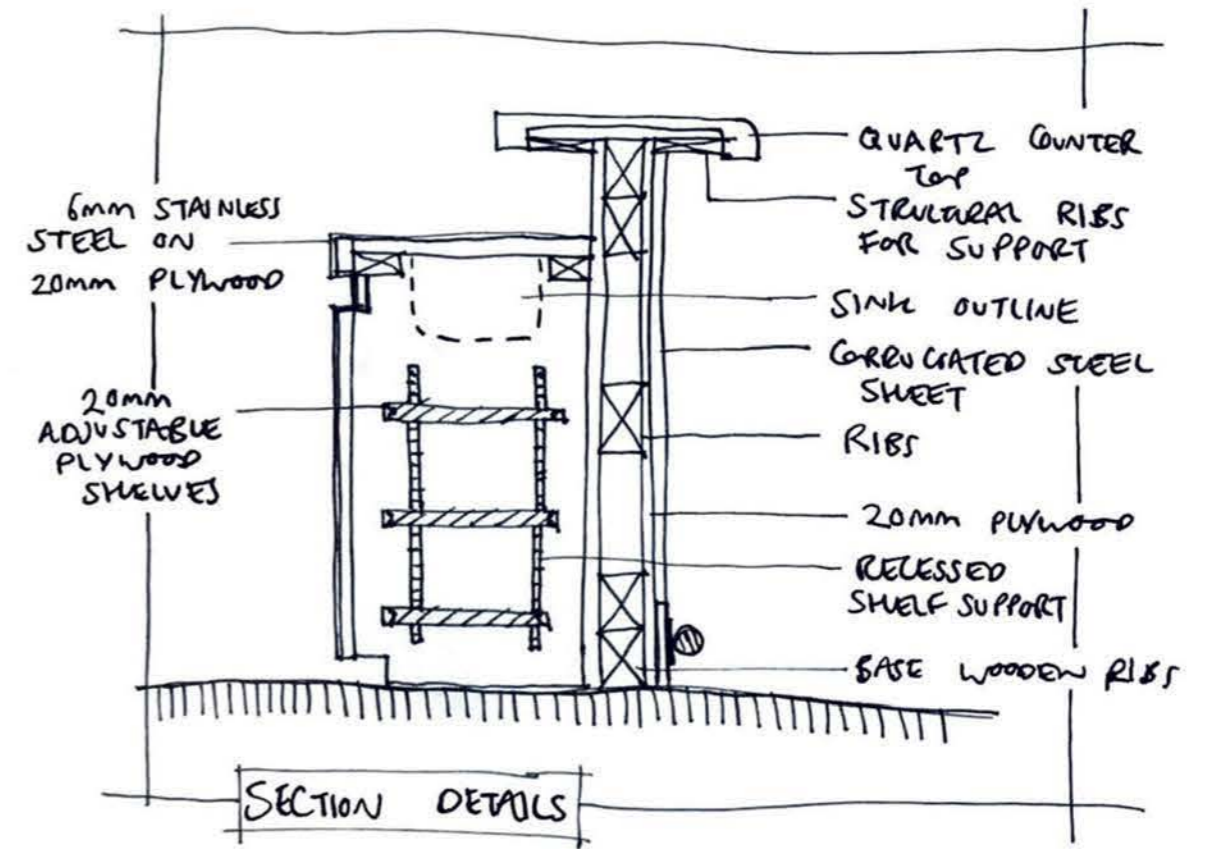 6mm STAINLESS
STEEL ON
20mm PLYWOOD
20mm
ADJUSTABLE
PLYWOOD
SHELVES
QUARTZ COUNTER
TOP
STRUCTURAL RIBS
FOR SUPPORT
SINK OUTLINE
CORRUGATED STEEL
SHEET
RIBS
20mm PLYWOOD
RECESSED
SHELF SUPPORT
BASE WOODEN RIBS
SECTION DETAILS